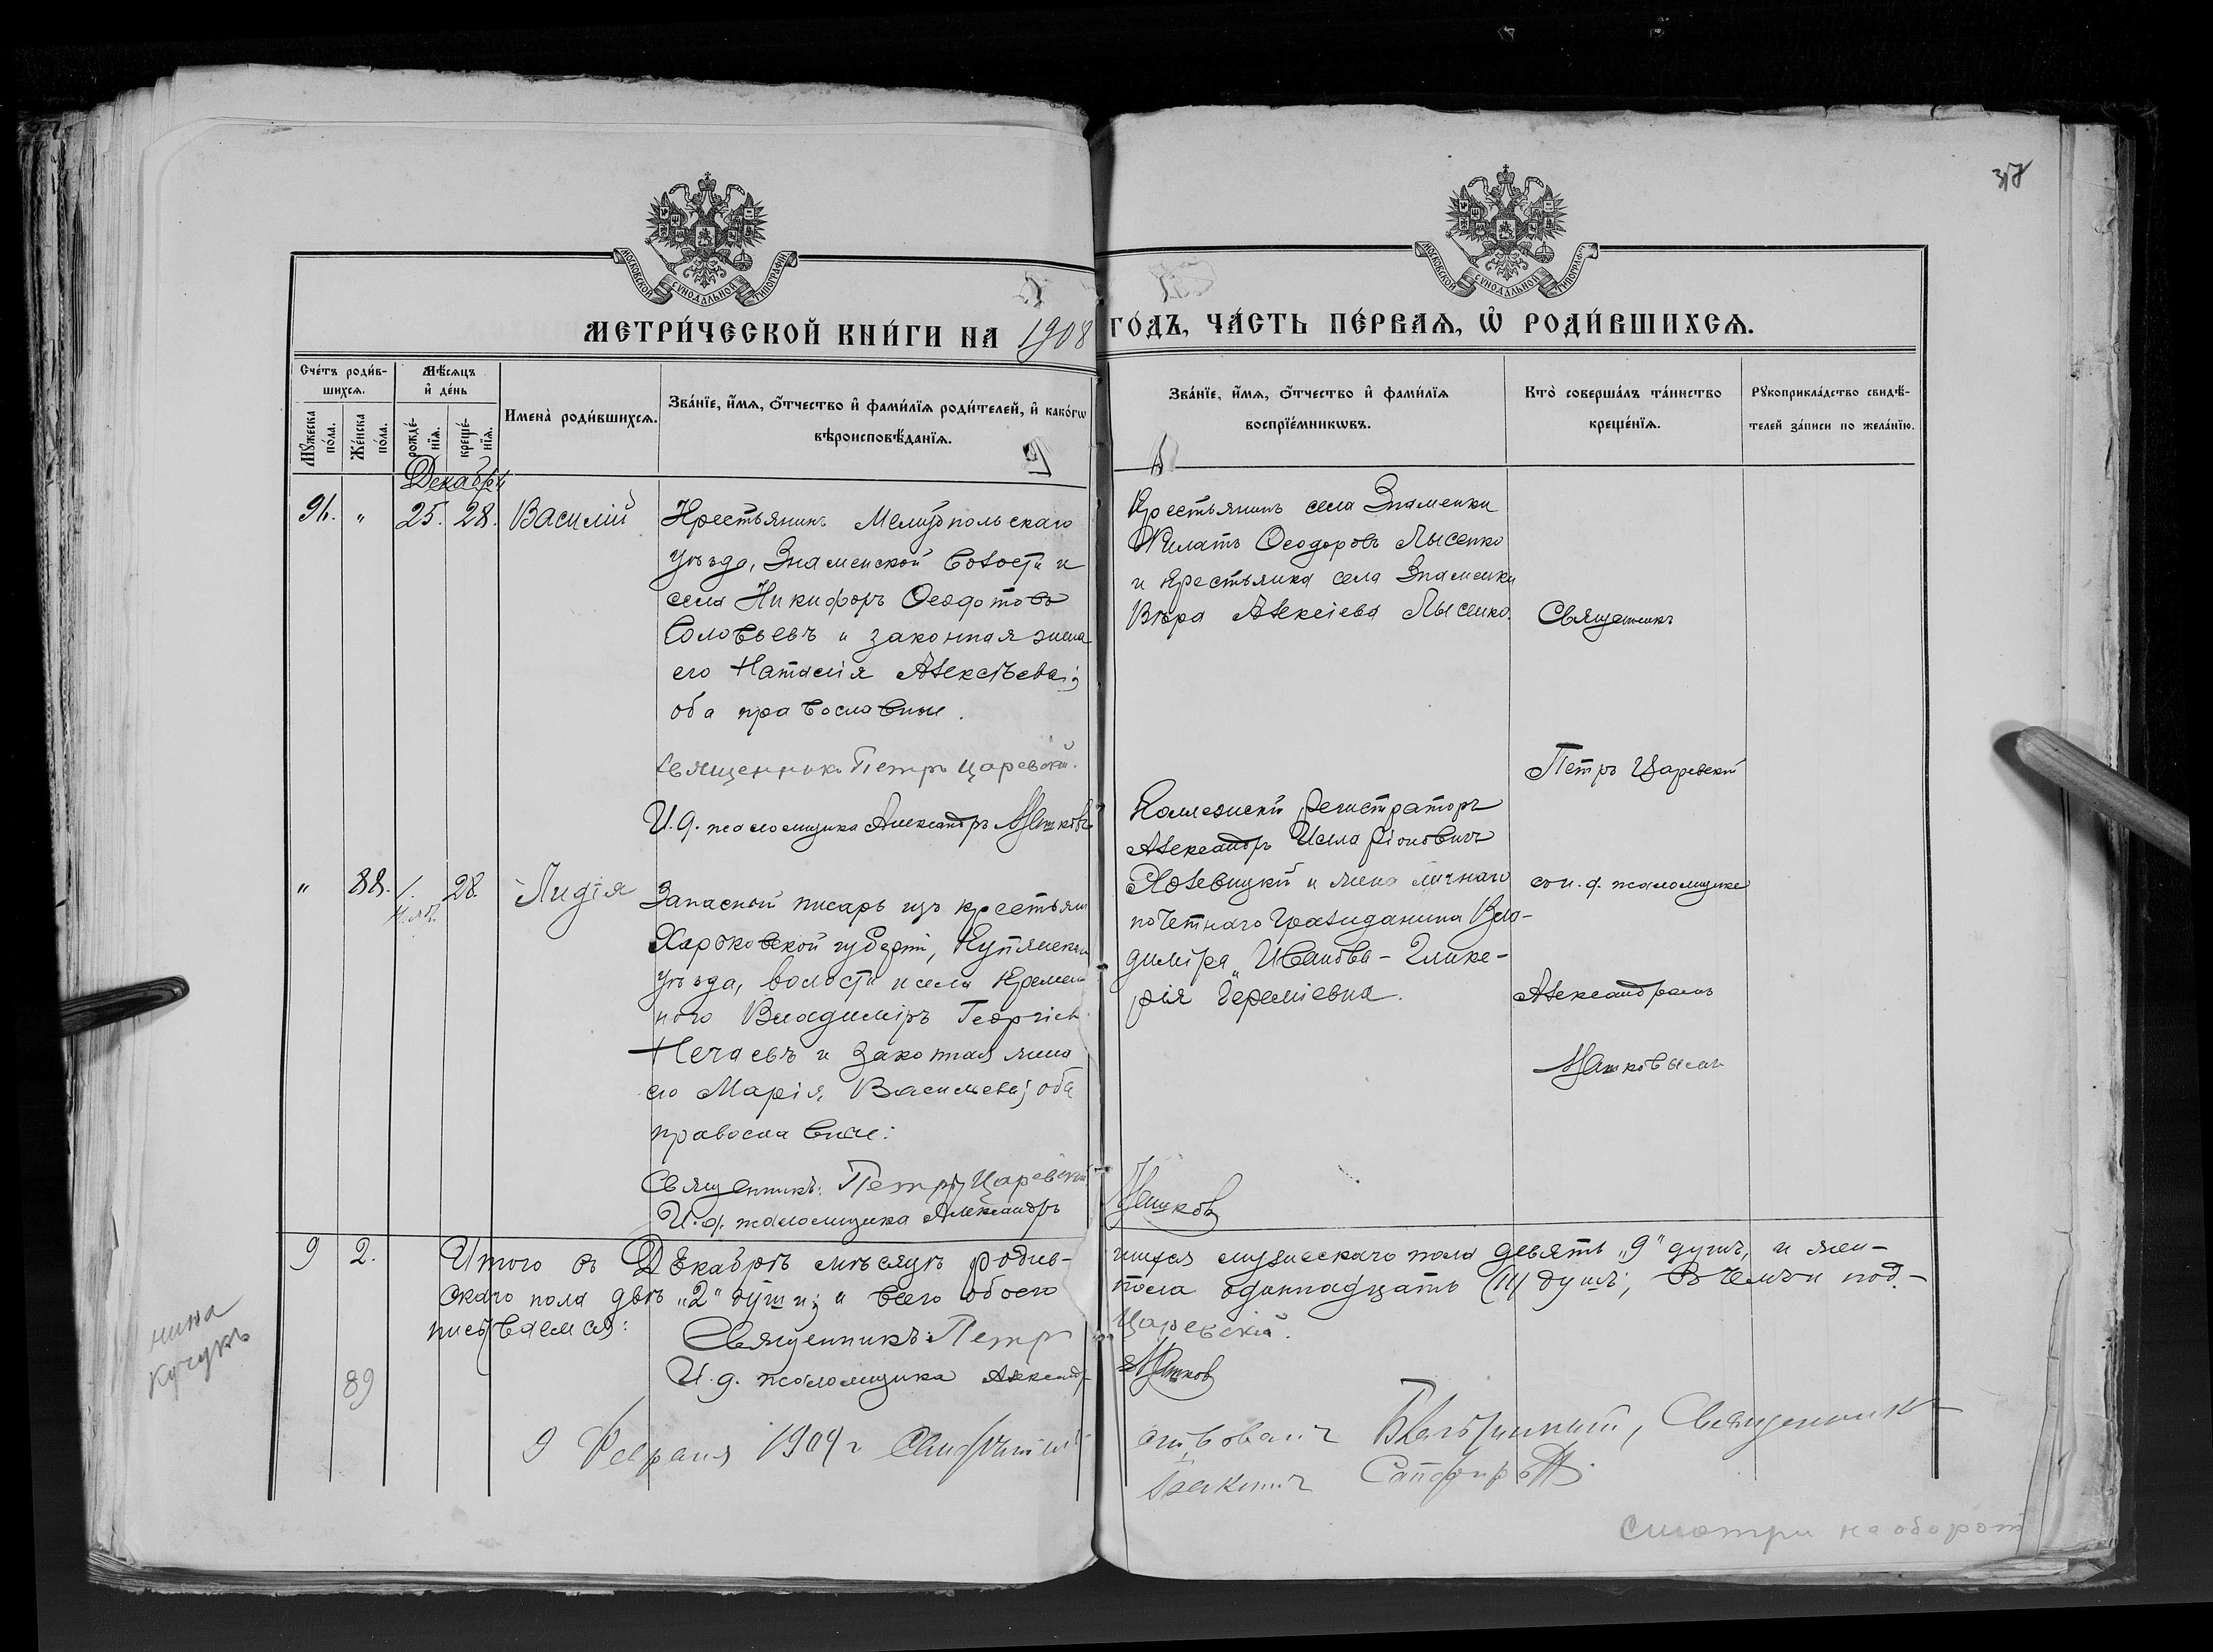 МОСКОВСКОЙ СѴНОДАЛЬНОЙ ТИПОГРАФІИ
МОСКОВСКОЙ СѴНОДАЛЬНОЙ ТИПОГРАФІИ
МЕТРИ́ЧЕСКОЙ КНИ́ГИ НА 1908 ГО́ДЪ, ЧА́СТЬ ПЕ́РВАѦ, Ѡ҆ РОДИ́ВШИХСѦ.
Сче́тъ роди́в-
шихсѧ.
Мꙋ́жеска по́ла.
Же́нска по́ла.
Мѣ́сѧцъ
и҆ де́нь
рожде́-нїѧ.
креще́-нїѧ.
Имена̀ роди́вшихсѧ.
Зва́нїе, и҆́мѧ, ѻ҆́тчество и҆ фами́лїѧ роди́телей, и҆ како́гѡ
вѣроисповѣ́данїѧ.
Зва́нїе, и҆́мѧ, ѻ҆́тчество и҆ фами́лїѧ
воспрїе́мникѡвъ.
Кто̀ соверша́лъ та́инство
креще́нїѧ.
Рꙋкоприкла́дство свидѣ́-
телей за́писи по жела́нїю.
Декабря
91. " 25. 28. Василій
Крестьянинъ Мелитопольскаго
уѣзда, Знаменской волости и
села Никифоръ Ѳеодотовъ
Соловьевъ и законная жена
его Наталія Алексѣева;
оба православные.
Священникъ Петръ Царевскій.
И. д. псаломщика Александръ Мешковъ
Крестьянинъ села Знаменки
Филатъ Ѳеодоровъ Лысенко
и крестьянка села Знаменки
Вѣра Алексіева Лысенко.
Священникъ
Петръ Царевскій
со и. д. псаломщика
Александромъ
" 88. 1. 28. Лидія
Запасной писарь изъ крестьян
Харьковской губерніи, Купянскаго
уѣзда, волости и села Кремен
ного Владиміръ Георгіев
Нечаевъ и законная жена
его Марія Васильева; оба
православные:
Священникъ: Петръ Царевскій
И. д. псаломщика Александръ Мешков
Коллежскій регистраторъ
Александръ Илларіоновичъ
и жена личнаго
почетнаго гражданина Вла-
диміра Иванова - Глике-
рія Іереміевна.
9 2. Итого въ Декабрѣ мѣсяцѣ родив-
шихся мужескаго пола девять "9" душъ, и жен-
скаго пола двѣ "2" души; а всего обоего
пола одиннадцать (11) душъ; въ чемъ и под-
писываемся:
Священникъ: Петръ Царевскій.
И. д. псаломщика Александръ Мешков
89
9 Февраля 1909 г
Священникъ
нина
кучукъ
смотри на оборот